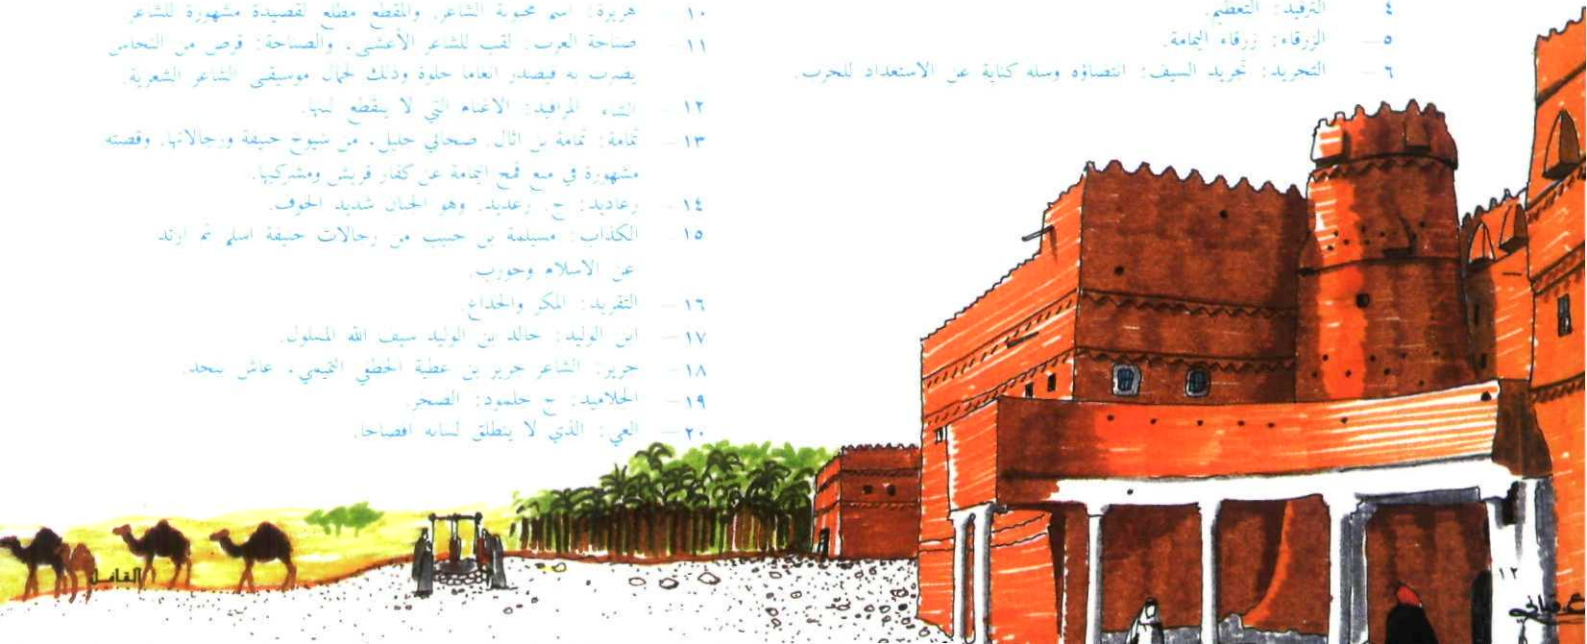 ٤ – الترفيد: التعظيم.
٥ – الزرقاء: زرقاء اليمامة.
٦ – التجريد: تجريد السيف: انتضاؤه وسله كناية عن الاستعداد للحرب.
١٠ – هريرة: اسم محبوبة الشاعر. والمقطع مطلع لقصيدة مشهورة للشاعر
١١ – صناجة العرب. لقب للشاعر الأعشى. والصناجة: قرص من النحاس
يضرب به فيصدر انغاما حلوة وذلك لجمال موسيقى الشاعر الشعرية.
١٢ – الشاء المرافيد: الاغنام التي لا ينقطع لبنها.
١٣ – ثمامة: ثمامة بن اثال. صحابي جليل. من شيوخ حنيفة ورجالاتها. وقصته
مشهورة في منع قمح اليمامة عن كفار قريش ومشركيها.
١٤ – رعاديد: ج. رعديد. وهو الجبان شديد الخوف.
١٥ – الكذاب: مسيلمة بن حبيب من رجالات حنيفة اسلم ثم ارتد
عن الاسلام وحورب.
١٦ – التقريد: المكر والخداع.
١٧ – ابن الوليد: خالد بن الوليد سيف الله المسلول.
١٨ – جرير: الشاعر جرير بن عطية الخطفي التميمي. عاش بنجد.
١٩ – الجلاميد: ج جلمود: الصخر.
٢٠ – العي: الذي لا ينطلق لسانه افصاحا.
القافلة
١٢